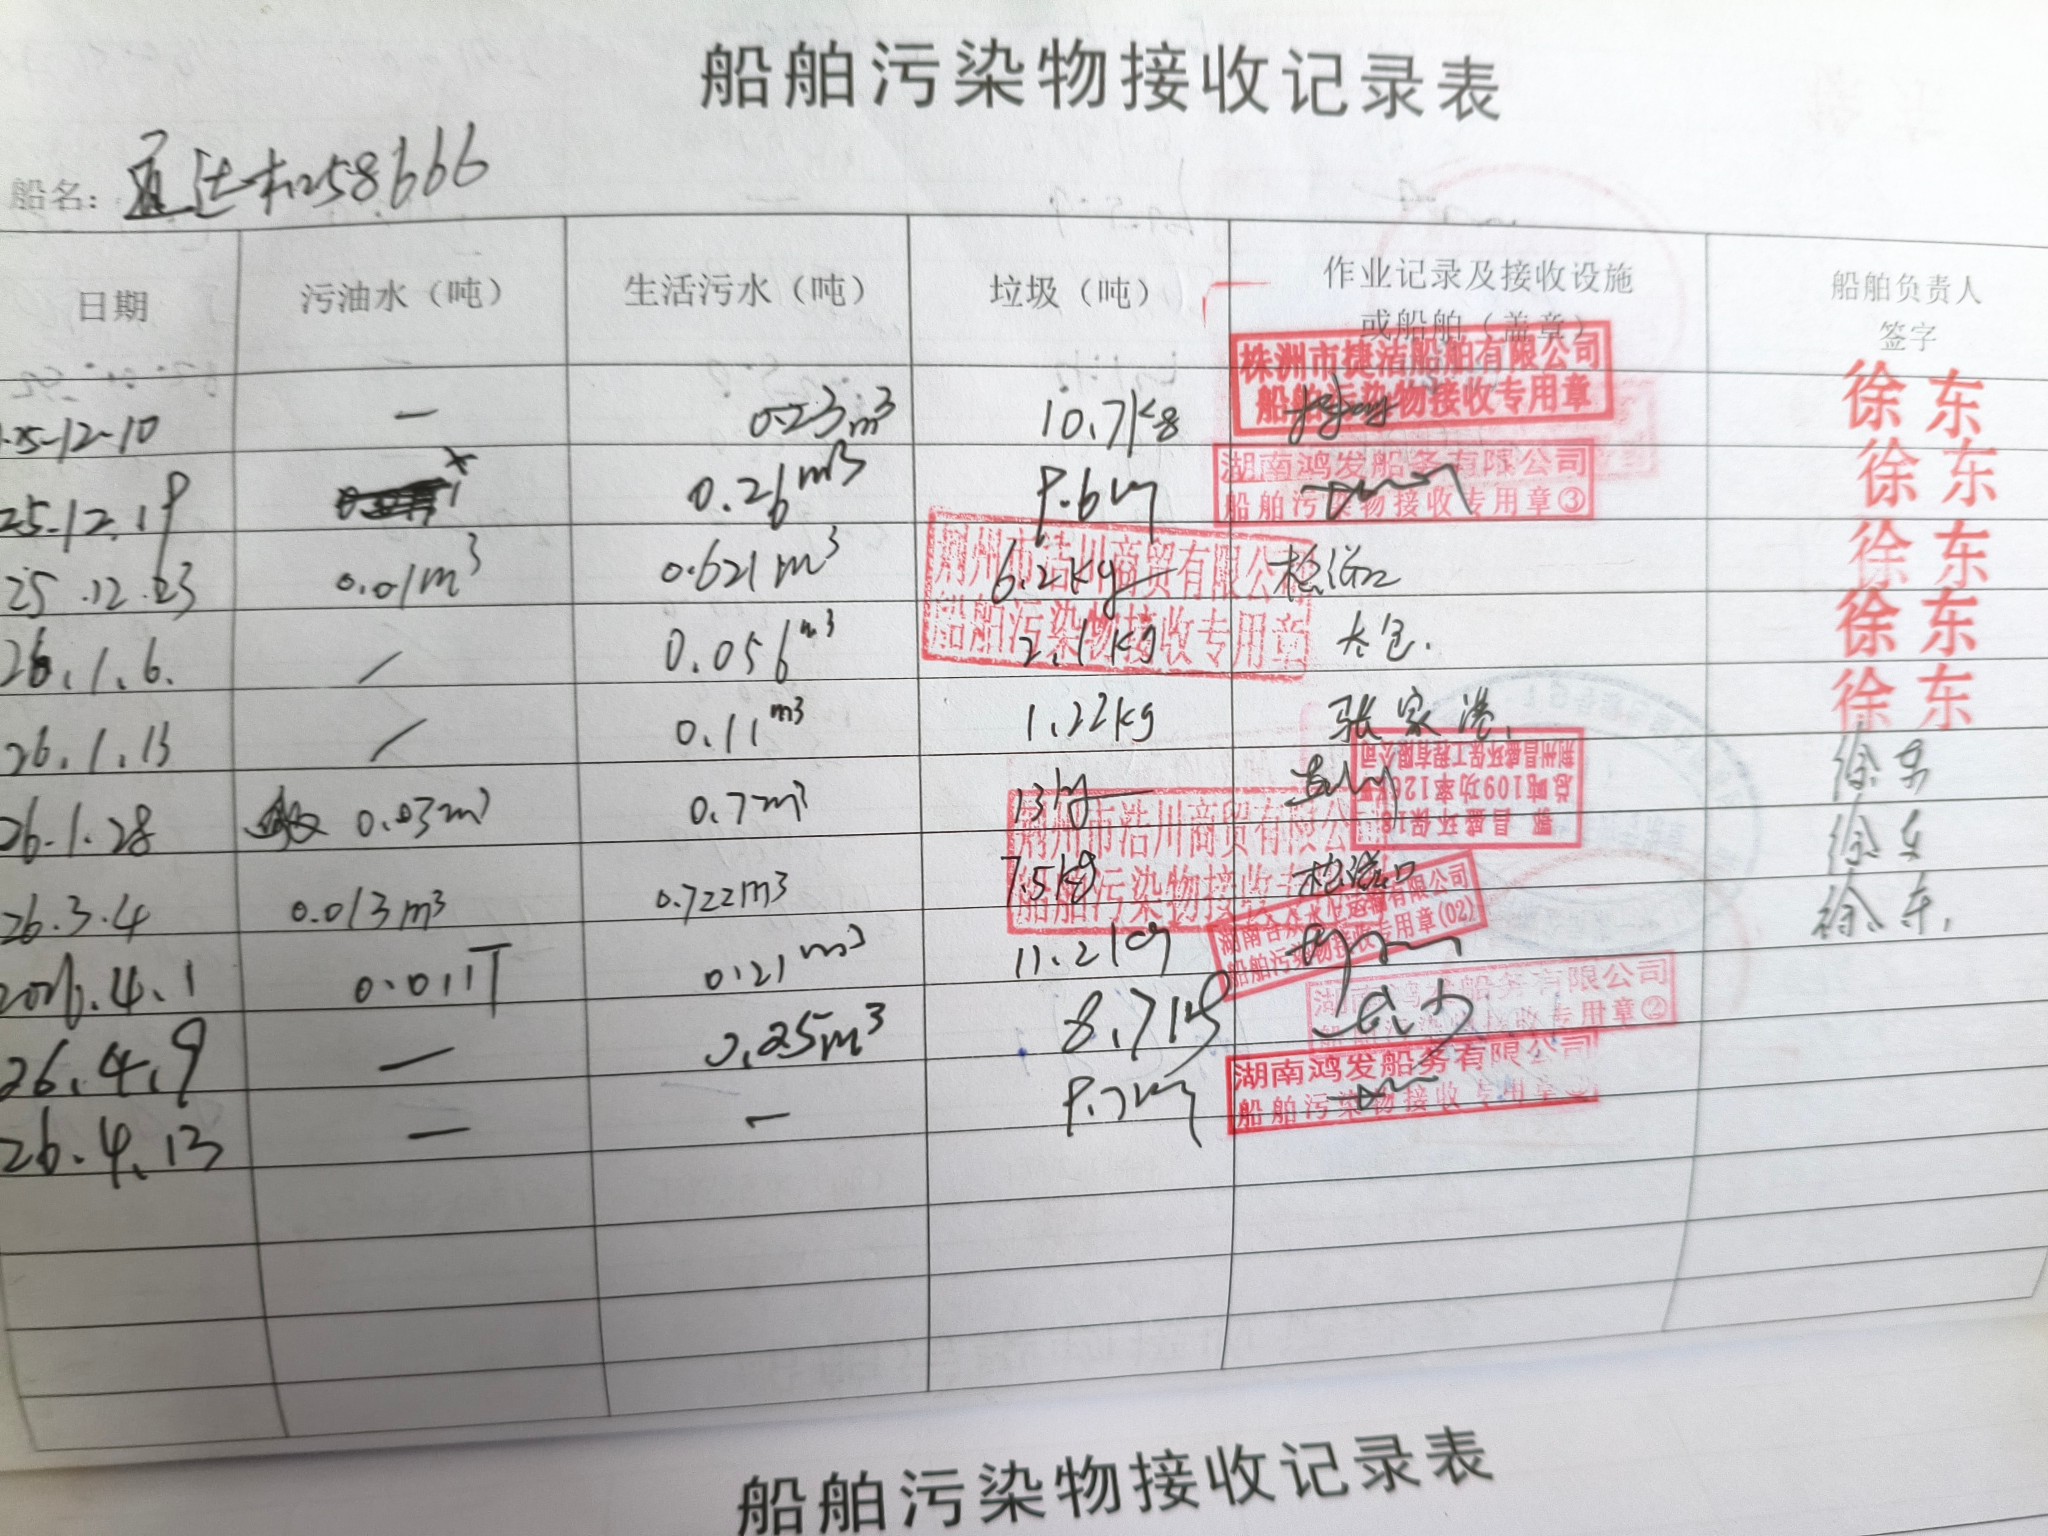 船舶污染物接收记录表
船名: 通达机258666
日期 污油水（吨） 生活污水（吨） 垃圾（吨） 作业记录及接收设施或船舶（盖章） 船舶负责人签字
25-12-10 — 0.23m³ 10.7kg 株洲市捷洁船舶有限公司 船舶污染物接收专用章 徐东
25.12.19 0.26m³ 9.6kg 湖南鸿发船务有限公司 船舶污染物接收专用章③ 徐东
25.12.23 0.01m³ 0.621m³ 6.2kg 松滋口 荆州市浩川商贸有限公司 船舶污染物接收专用章 徐东
26.1.6. / 0.056m³ 2.1kg 太仓. 徐东
26.1.13 / 0.11m³ 1.22kg 张家港. 徐东
26.1.28 0.03m³ 0.7m³ 13kg 鄂昌盛环保18 总吨109功率120 荆州昌盛环保工程有限公司 徐东
26.3.4 0.013m³ 0.722m³ 7.5kg 松滋口 荆州市浩川商贸有限公司 船舶污染物接收专用章 徐东
2026.4.1 0.011T 0.21m³ 11.2kg 湖南合众水上运输有限公司 船舶污染物接收专用章(02) 徐东.
26.4.9 — 0.25m³ 8.7kg 湖南鸿发船务有限公司 船舶污染物接收专用章②
26.4.13 — — 9.7kg 湖南鸿发船务有限公司 船舶污染物接收专用章
船舶污染物接收记录表